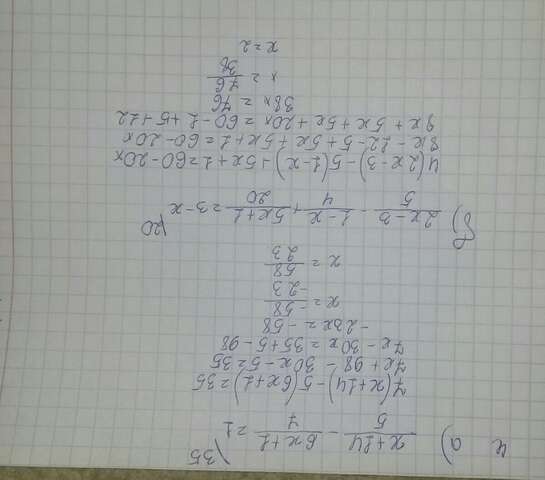 4 а) x+14/5 - 6x+1/7 = 1 \35
7(x+14)-5(6x+1)=35
7x+98-30x-5=35
7x-30x=35+5-98
-23x=-58
x=-58/-23
x=58/23
б) 2x-3/5 - 1-x/4 + 5x+1/20 = 3-x |20
4(2x-3)-5(1-x)+5x+1=60-20x
8x-12-5+5x+5x+1=60-20x
8x+5x+5x+20x=60-1+5+12
38x=76
x=76/38
x=2